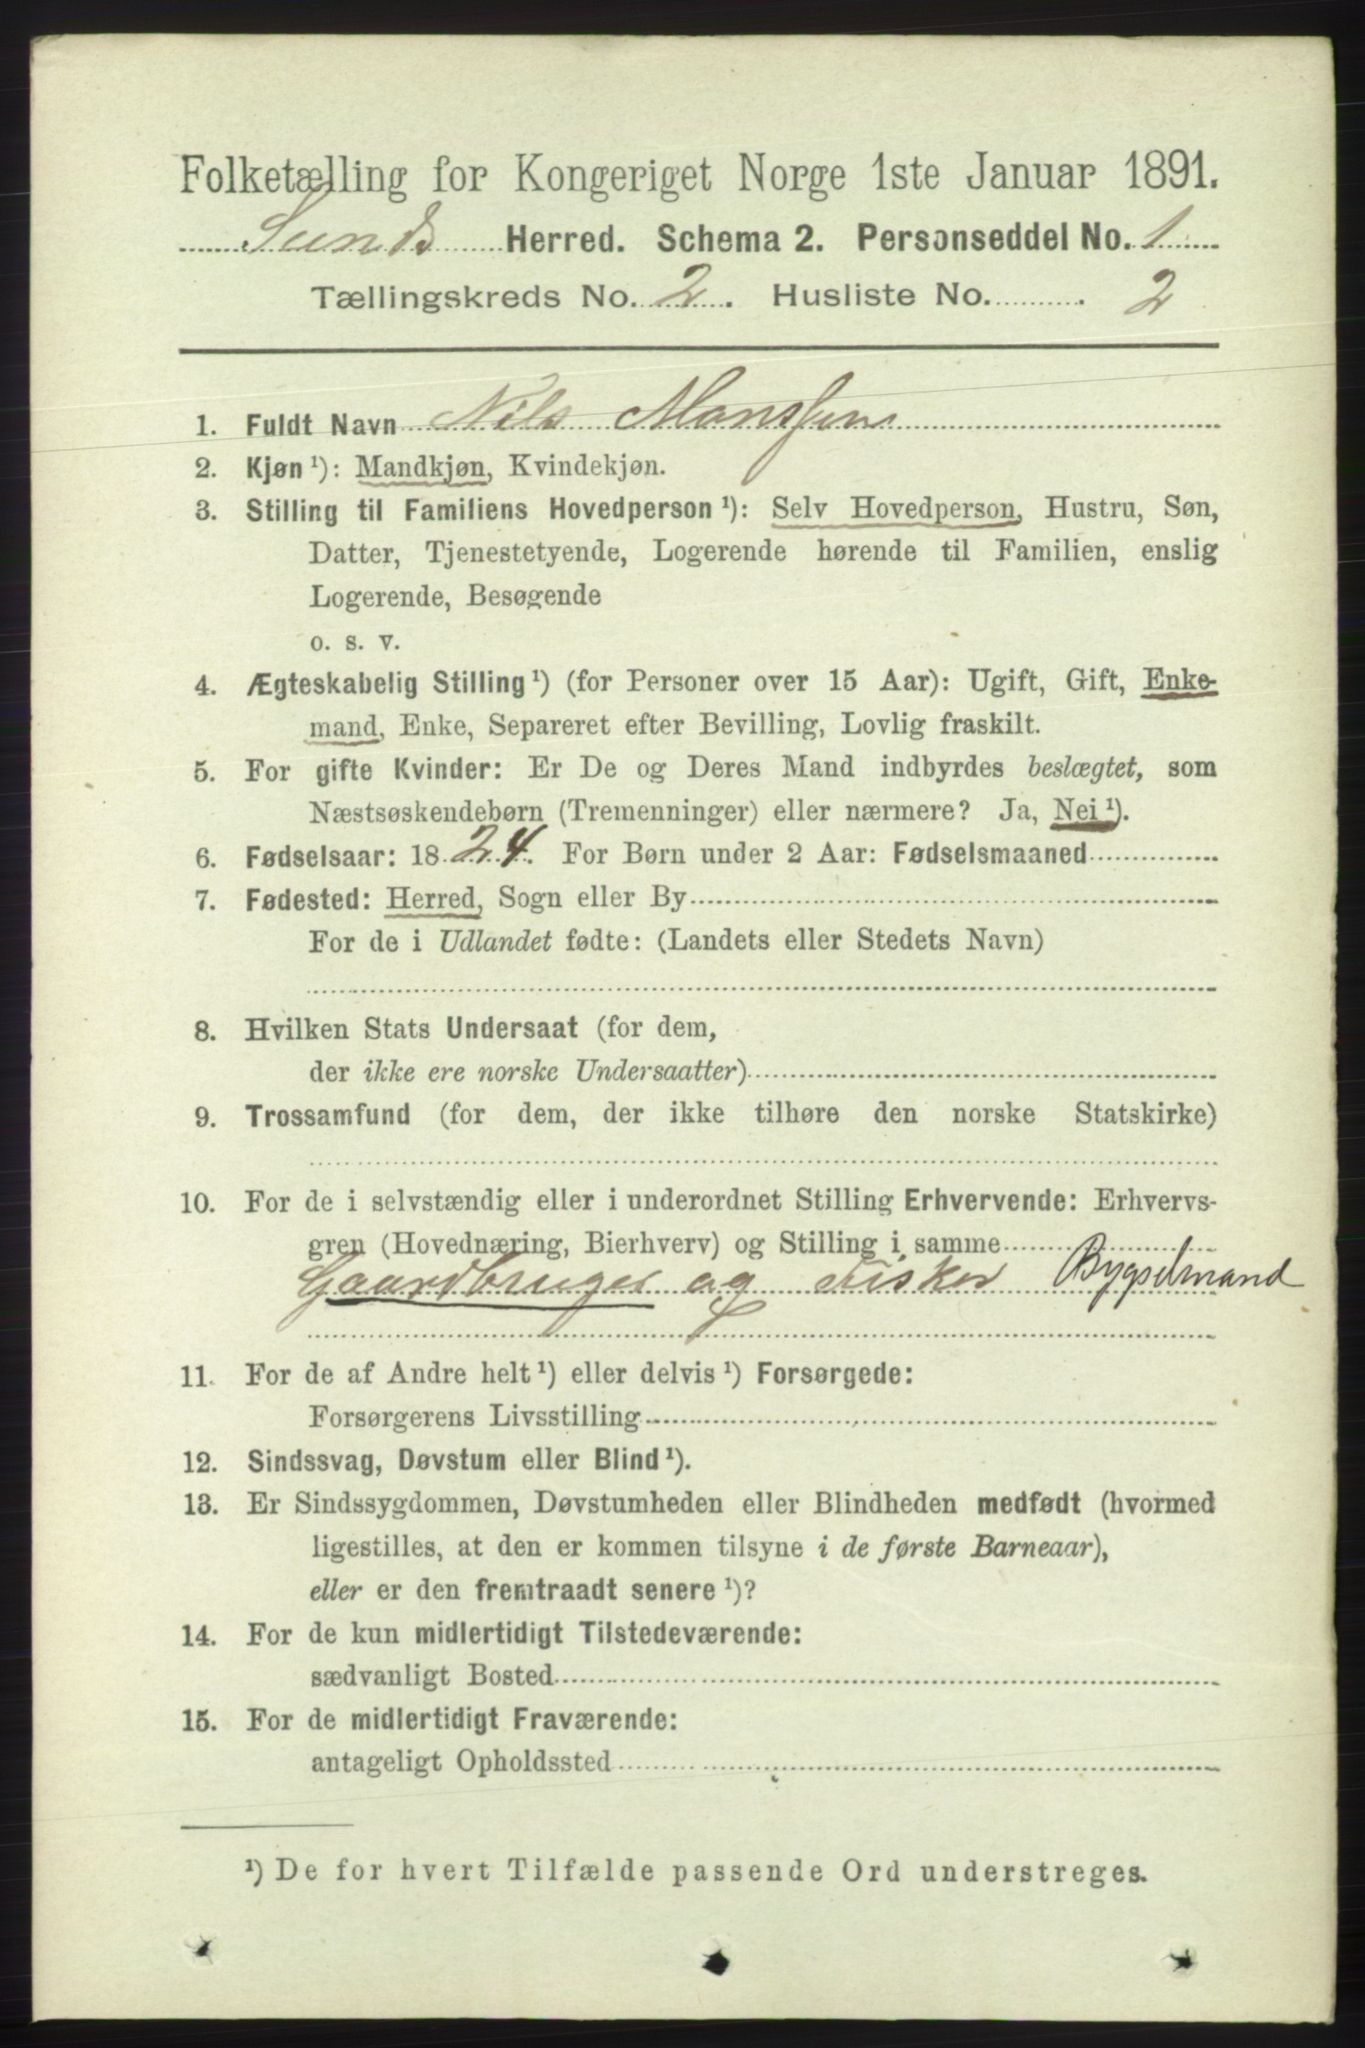 Folketælling for Kongeriget Norge 1ste Januar 1891.
Sunds Herred. Schema 2. Personseddel No. 1
Tællingskreds No. 2. Husliste No. 2
1. Fuldt Navn Nils Monssen
2. Kjøn ¹): Mandkjøn, Kvindekjøn.
3. Stilling til Familiens Hovedperson ¹): Selv Hovedperson, Hustru, Søn,
Datter, Tjenestetyende, Logerende hørende til Familien, enslig
Logerende, Besøgende
o. s. v.
4. Ægteskabelig Stilling ¹) (for Personer over 15 Aar): Ugift, Gift, Enke-
mand, Enke, Separeret efter Bevilling, Lovlig fraskilt.
5. For gifte Kvinder: Er De og Deres Mand indbyrdes beslægtet, som
Næstsøskendebørn (Tremenninger) eller nærmere? Ja, Nei ¹).
6. Fødselsaar: 1824. For Børn under 2 Aar: Fødselsmaaned
7. Fødested: Herred, Sogn eller By
For de i Udlandet fødte: (Landets eller Stedets Navn)
8. Hvilken Stats Undersaat (for dem,
der ikke ere norske Undersaatter)
9. Trossamfund (for dem, der ikke tilhøre den norske Statskirke)
10. For de i selvstændig eller i underordnet Stilling Erhvervende: Erhvervs-
gren (Hovednæring, Bierhverv) og Stilling i samme
Gaardbruger og Fisker Bygselmand
11. For de af Andre helt ¹) eller delvis ¹) Forsørgede:
Forsørgerens Livsstilling
12. Sindssvag, Døvstum eller Blind ¹).
13. Er Sindssygdommen, Døvstumheden eller Blindheden medfødt (hvormed
ligestilles, at den er kommen tilsyne i de første Barneaar),
eller er den fremtraadt senere ¹)?
14. For de kun midlertidigt Tilstedeværende:
sædvanligt Bosted
15. For de midlertidigt Fraværende:
antageligt Opholdssted
¹) De for hvert Tilfælde passende Ord understreges.